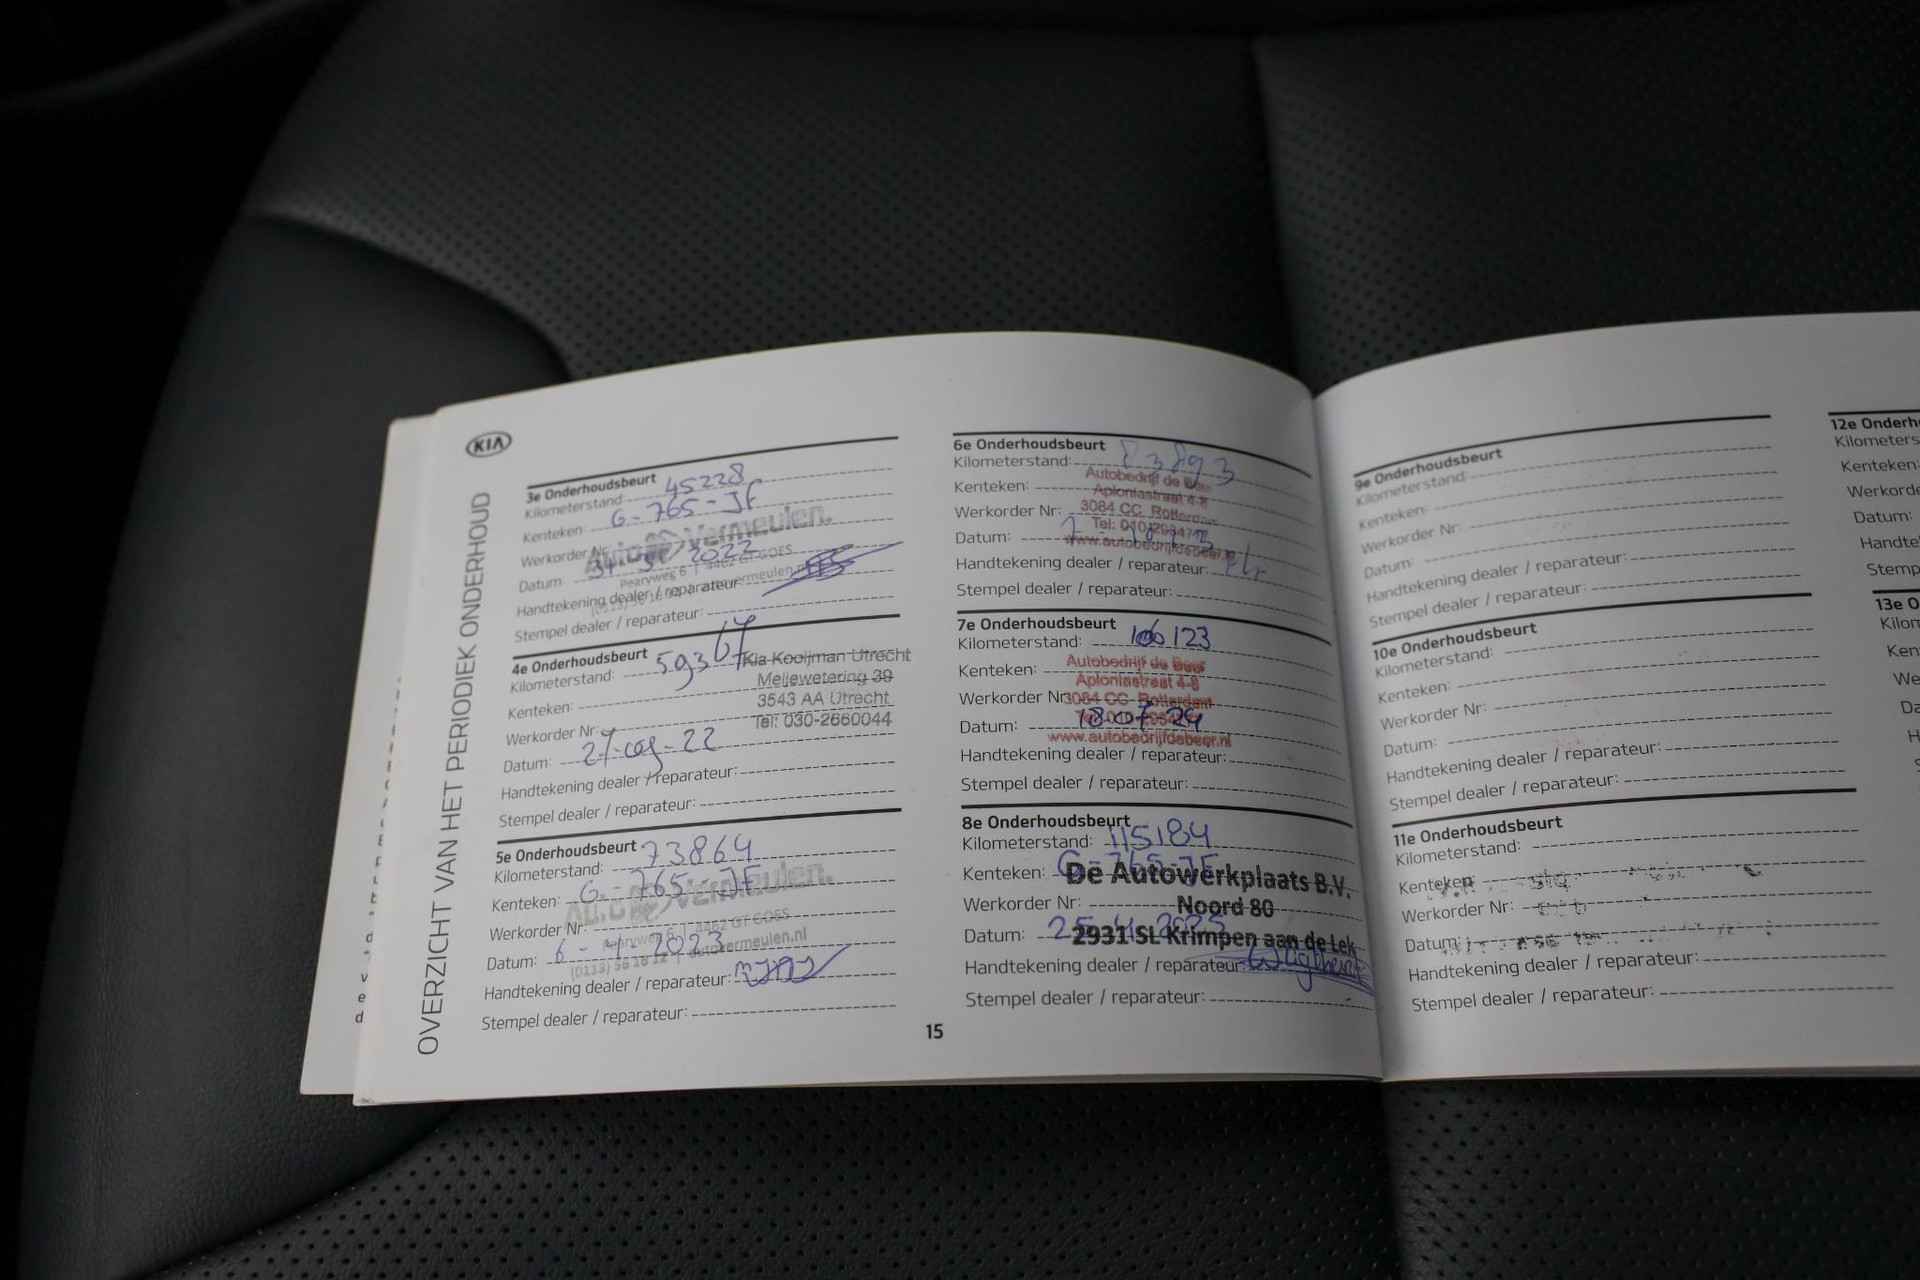 KIA
OVERZICHT VAN HET PERIODIEK ONDERHOUD
3e Onderhoudsbeurt
Kilometerstand: 45228
Kenteken: G-765-JF
Werkorder Nr:
Vermeulen.
Datum 2022
4462 GT GOES
Handtekening dealer / reparateur:
Stempel dealer / reparateur:
4e Onderhoudsbeurt
Kilometerstand: 59367
Kia Kooijman Utrecht
Meijewetering 39
Kenteken:
3543 AA Utrecht
Werkorder Nr:
Tel: 030-2660044
Datum: 22
Handtekening dealer / reparateur:
Stempel dealer / reparateur:
5e Onderhoudsbeurt
Kilometerstand: 73864
Kenteken: G-765-JF
Vermeulen.
Werkorder Nr:
4462 GT GOES
Datum: 6-4-2023
autovermeulen.nl
Handtekening dealer / reparateur:
Stempel dealer / reparateur:
6e Onderhoudsbeurt
Kilometerstand:
Autobedrijf de Beer
Kenteken:
Aploniastraat 4-8
Werkorder Nr:
3084 CC Rotterdam
Datum:
www.autobedrijfdebeer.nl
Handtekening dealer / reparateur:
Stempel dealer / reparateur:
7e Onderhoudsbeurt
Kilometerstand: 106123
Kenteken:
Autobedrijf de Beer
Aploniastraat 4-8
Werkorder Nr:
3084 CC Rotterdam
Datum: 18 07 24
www.autobedrijfdebeer.nl
Handtekening dealer / reparateur:
Stempel dealer / reparateur:
8e Onderhoudsbeurt
Kilometerstand: 115184
Kenteken: G-765-JF
De Autowerkplaats B.V.
Werkorder Nr:
Noord 80
Datum: 25-4-
2931 SL Krimpen aan de Lek
Handtekening dealer / reparateur:
Stempel dealer / reparateur:
15
9e Onderhoudsbeurt
Kilometerstand:
Kenteken:
Werkorder Nr:
Datum:
Handtekening dealer / reparateur:
Stempel dealer / reparateur:
10e Onderhoudsbeurt
Kilometerstand:
Kenteken:
Werkorder Nr:
Datum:
Handtekening dealer / reparateur:
Stempel dealer / reparateur:
11e Onderhoudsbeurt
Kilometerstand:
Kenteken:
Werkorder Nr:
Datum:
Handtekening dealer / reparateur:
Stempel dealer / reparateur:
12e Onderh
Kilometers
Kenteken:
Werkorde
Datum:
Handte
Stemp
13e O
Kilom
Ken
We
Da
H
S